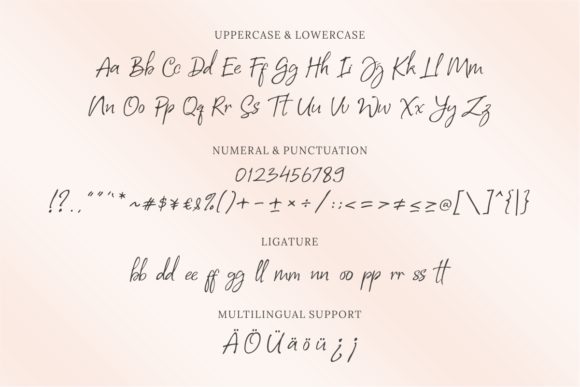 UPPERCASE & LOWERCASE
Aa Bb Cc Dd Ee Ff Gg Hh Ii Jj Kk Ll Mm
Nn Oo Pp Qq Rr Ss Tt Uu Vv Ww Xx Yy Zz
NUMERAL & PUNCTUATION
0123456789
!?.,“”‘’*~#$¥€&%()+-±×÷/:;<=>≠≤≥@[\]^{|}
LIGATURE
bb dd ee ff gg ll mm nn oo pp rr ss tt
MULTILINGUAL SUPPORT
ÄÖÜäöü¿¡